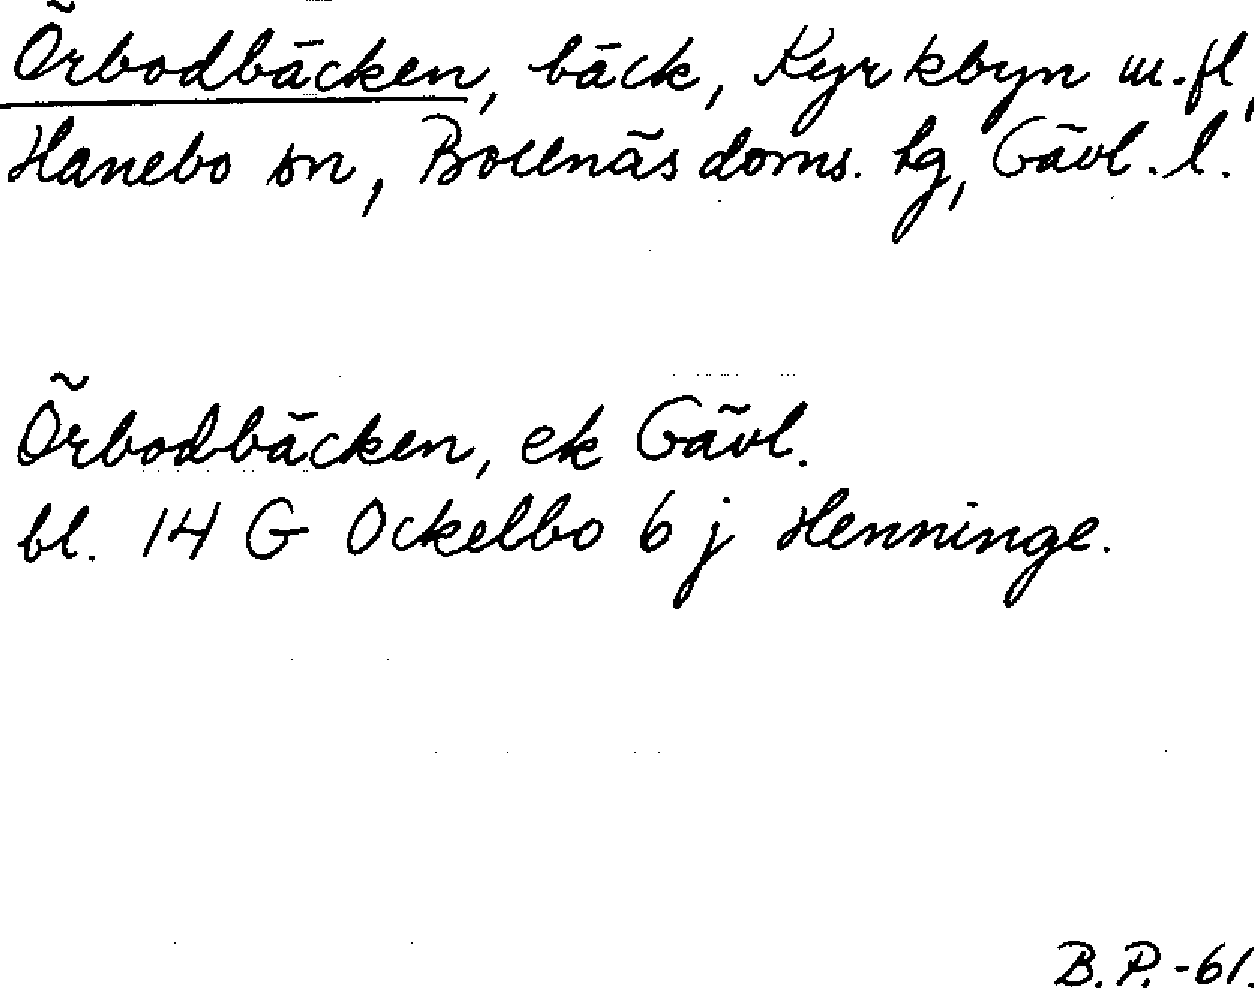 Örbodbäcken, bäck, Kyrkbyn m.fl,
Hanebo sn, Bollnäs doms. lg, Gävl. l.
Örbodbäcken, ek Gävl.
bl. 14 G Ockelbo 6 j Henninge.
B.P. -61.